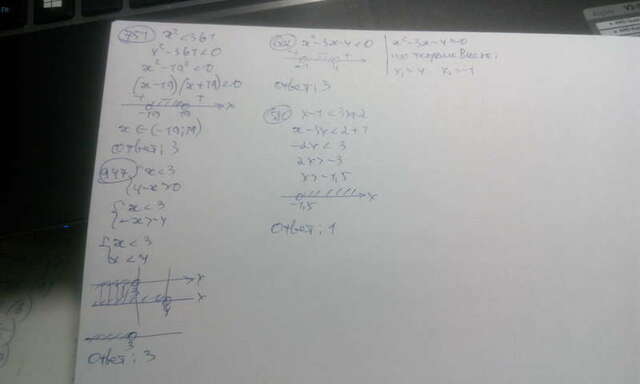 757 x² < 361
x² - 361 < 0
x² - 19² < 0
(x - 19)(x + 19) < 0
+ - + x
-19 19
x ∈ (-19; 19)
Ответ: 3
947 { x < 3
{ 4 - x > 0
{ x < 3
{ -x > -4
{ x < 3
{ x < 4
x
3
x
4
3
Ответ: 3
x² - 3x - 4 < 0
+ - +
-1 4
Ответ: 3
x² - 3x - 4 = 0
по теореме Виета:
x₁ = 4 x₂ = -1
x - 1 < 3x + 2
x - 3x < 2 + 1
-2x < 3
2x > -3
x > -1,5
x
-1,5
Ответ: 1